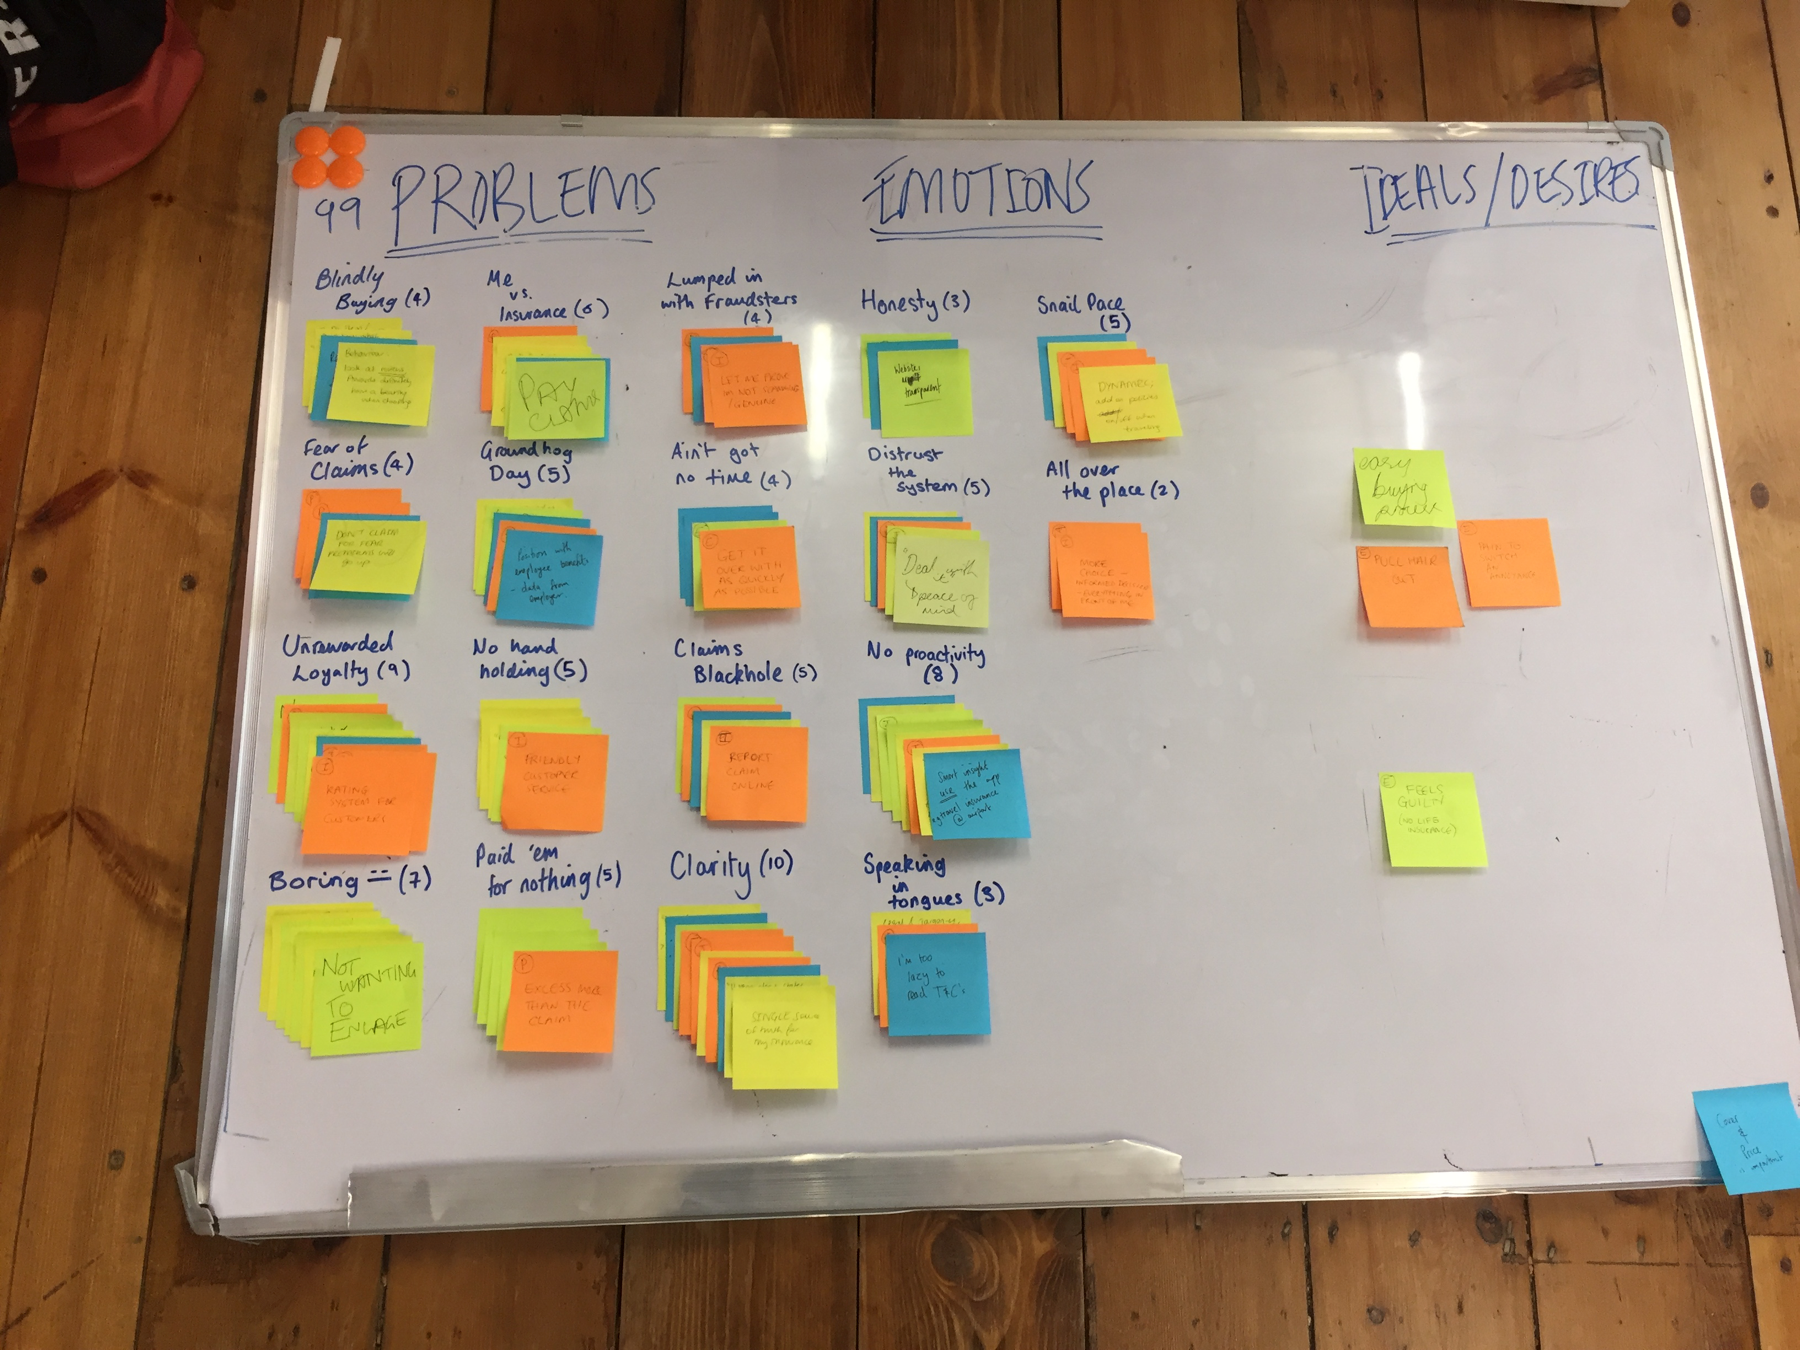 99 PROBLEMS
EMOTIONS
IDEALS/DESIRES
Blindly
Buying (4)
Me
vs.
Insurance (6)
PAY
CLAIMS
Lumped in
with Fraudsters
(4)
LET ME PROVE
IM NOT SCAMMING
/GENUINE
Honesty (3)
Website
transparent
Snail Pace
(5)
DYNAMIC,
add on policies
when
travelling
Fear of
Claims (4)
DON'T CLAIM
FOR FEAR
PREMIUMS WILL
go up
Groundhog
Day (5)
employee benefits
- data from
employer
Ain't got
no time (4)
GET IT
OVER WITH
AS QUICKLY
AS POSSIBLE
Distrust
the
system (5)
Deal with
peace of
mind
All over
the place (2)
MORE
CHOICE -
INFORMED
- EVERYTHING IN
FRONT OF ME
easy
buying
process
PULL HAIR
OUT
Unrewarded
Loyalty (9)
RATING
SYSTEM FOR
CUSTOMER
No hand
holding (5)
FRIENDLY
CUSTOMER
SERVICE
Claims
Blackhole (5)
REPORT
CLAIM
ONLINE
No proactivity
(8)
Smart insight
use the app
eg travel insurance
@ airport
FEELS
GUILTY
(NO LIFE
INSURANCE)
Boring = (7)
NOT
WANTING
TO
ENGAGE
Paid 'em
for nothing (5)
P
EXCESS MORE
THAN THE
CLAIM
Clarity (10)
SINGLE source
of truth for
my insurance
Speaking
in
tongues (3)
I'm too
lazy to
read T&C's
Cover
Price
important